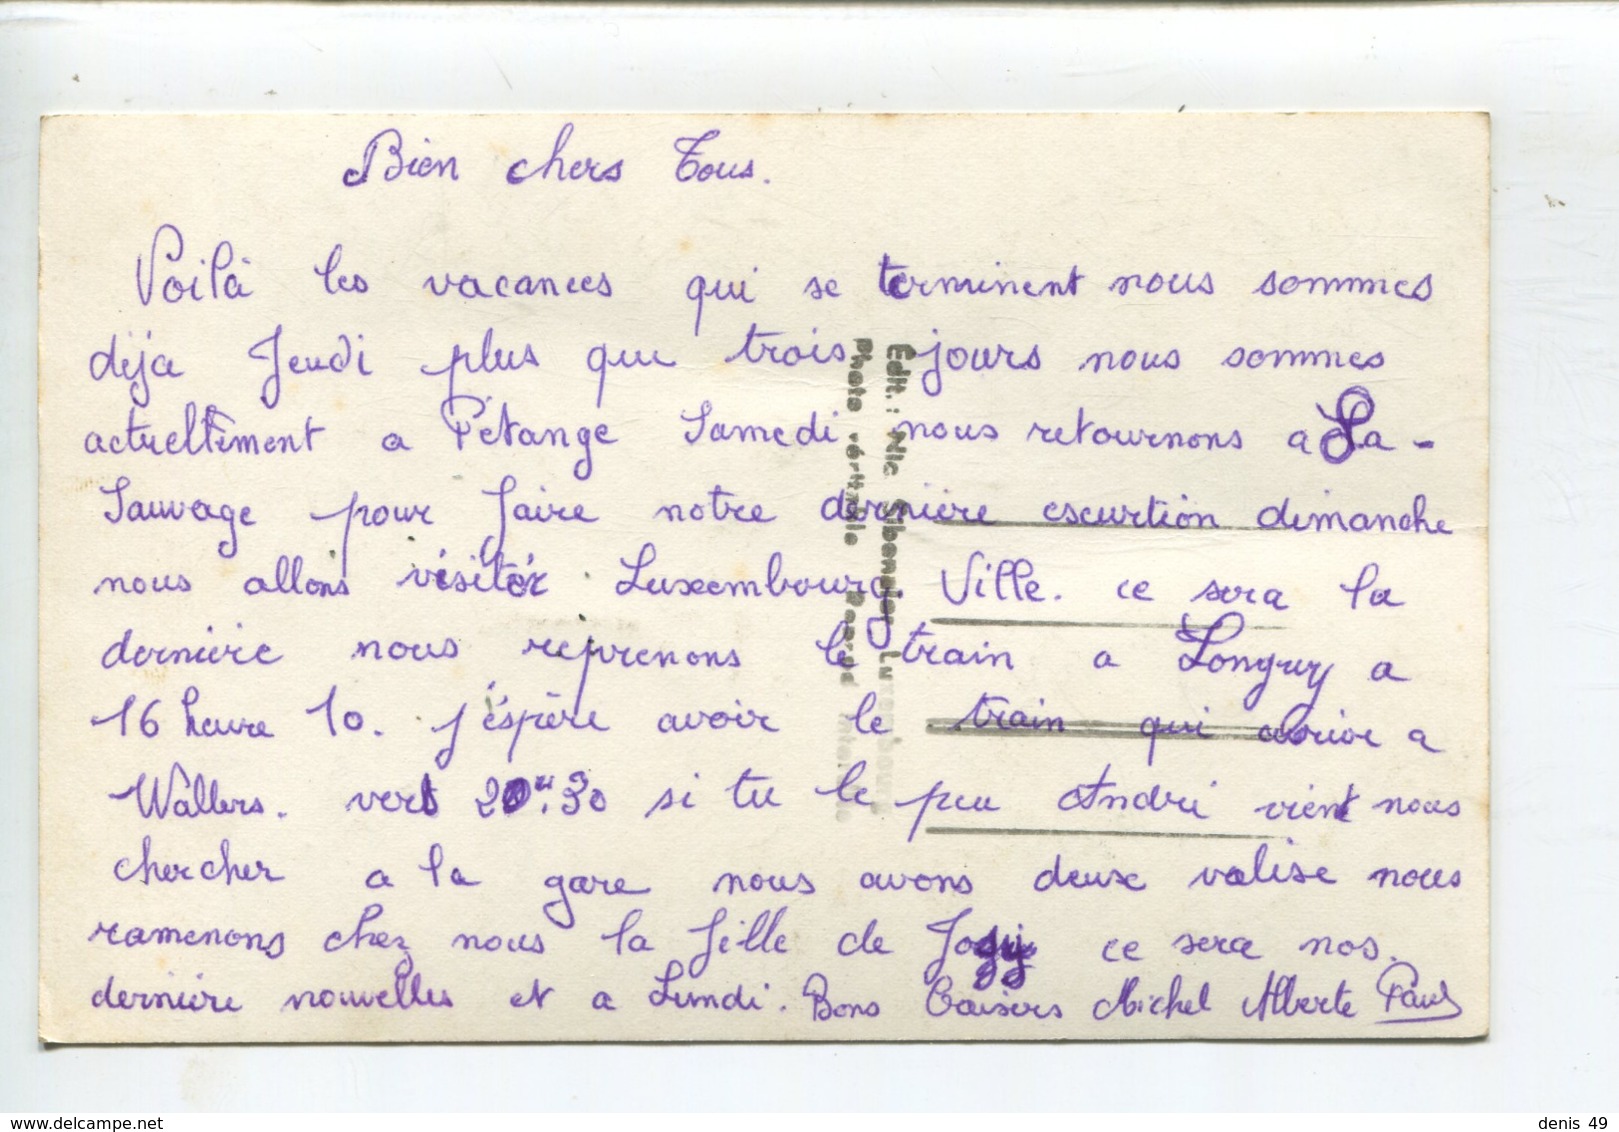 Bien chers Tous.
Voilà les vacances qui se terminent nous sommes
déja Jeudi plus que trois jours nous sommes
actuellement a Pétange Samedi nous retournons a La-
Sauvage pour faire notre dernière escurtion dimanche
nous allons visiter Luxembourg Ville. ce sera la
dernière nous reprenons le train a Longwy a
16 heure 10. j'éspère avoir le train qui arrive a
Wallers. vers 20H.30 si tu le peu André vient nous
chercher a la gare nous avons deux valise nous
ramenons chez nous la fille de ce sera nos.
dernière nouvelles et a Lundi. Bons baisers Michel Alberte Paul
Edit.: Nic. Sibenaler, Luxembourg
Photo véritable
denis 49